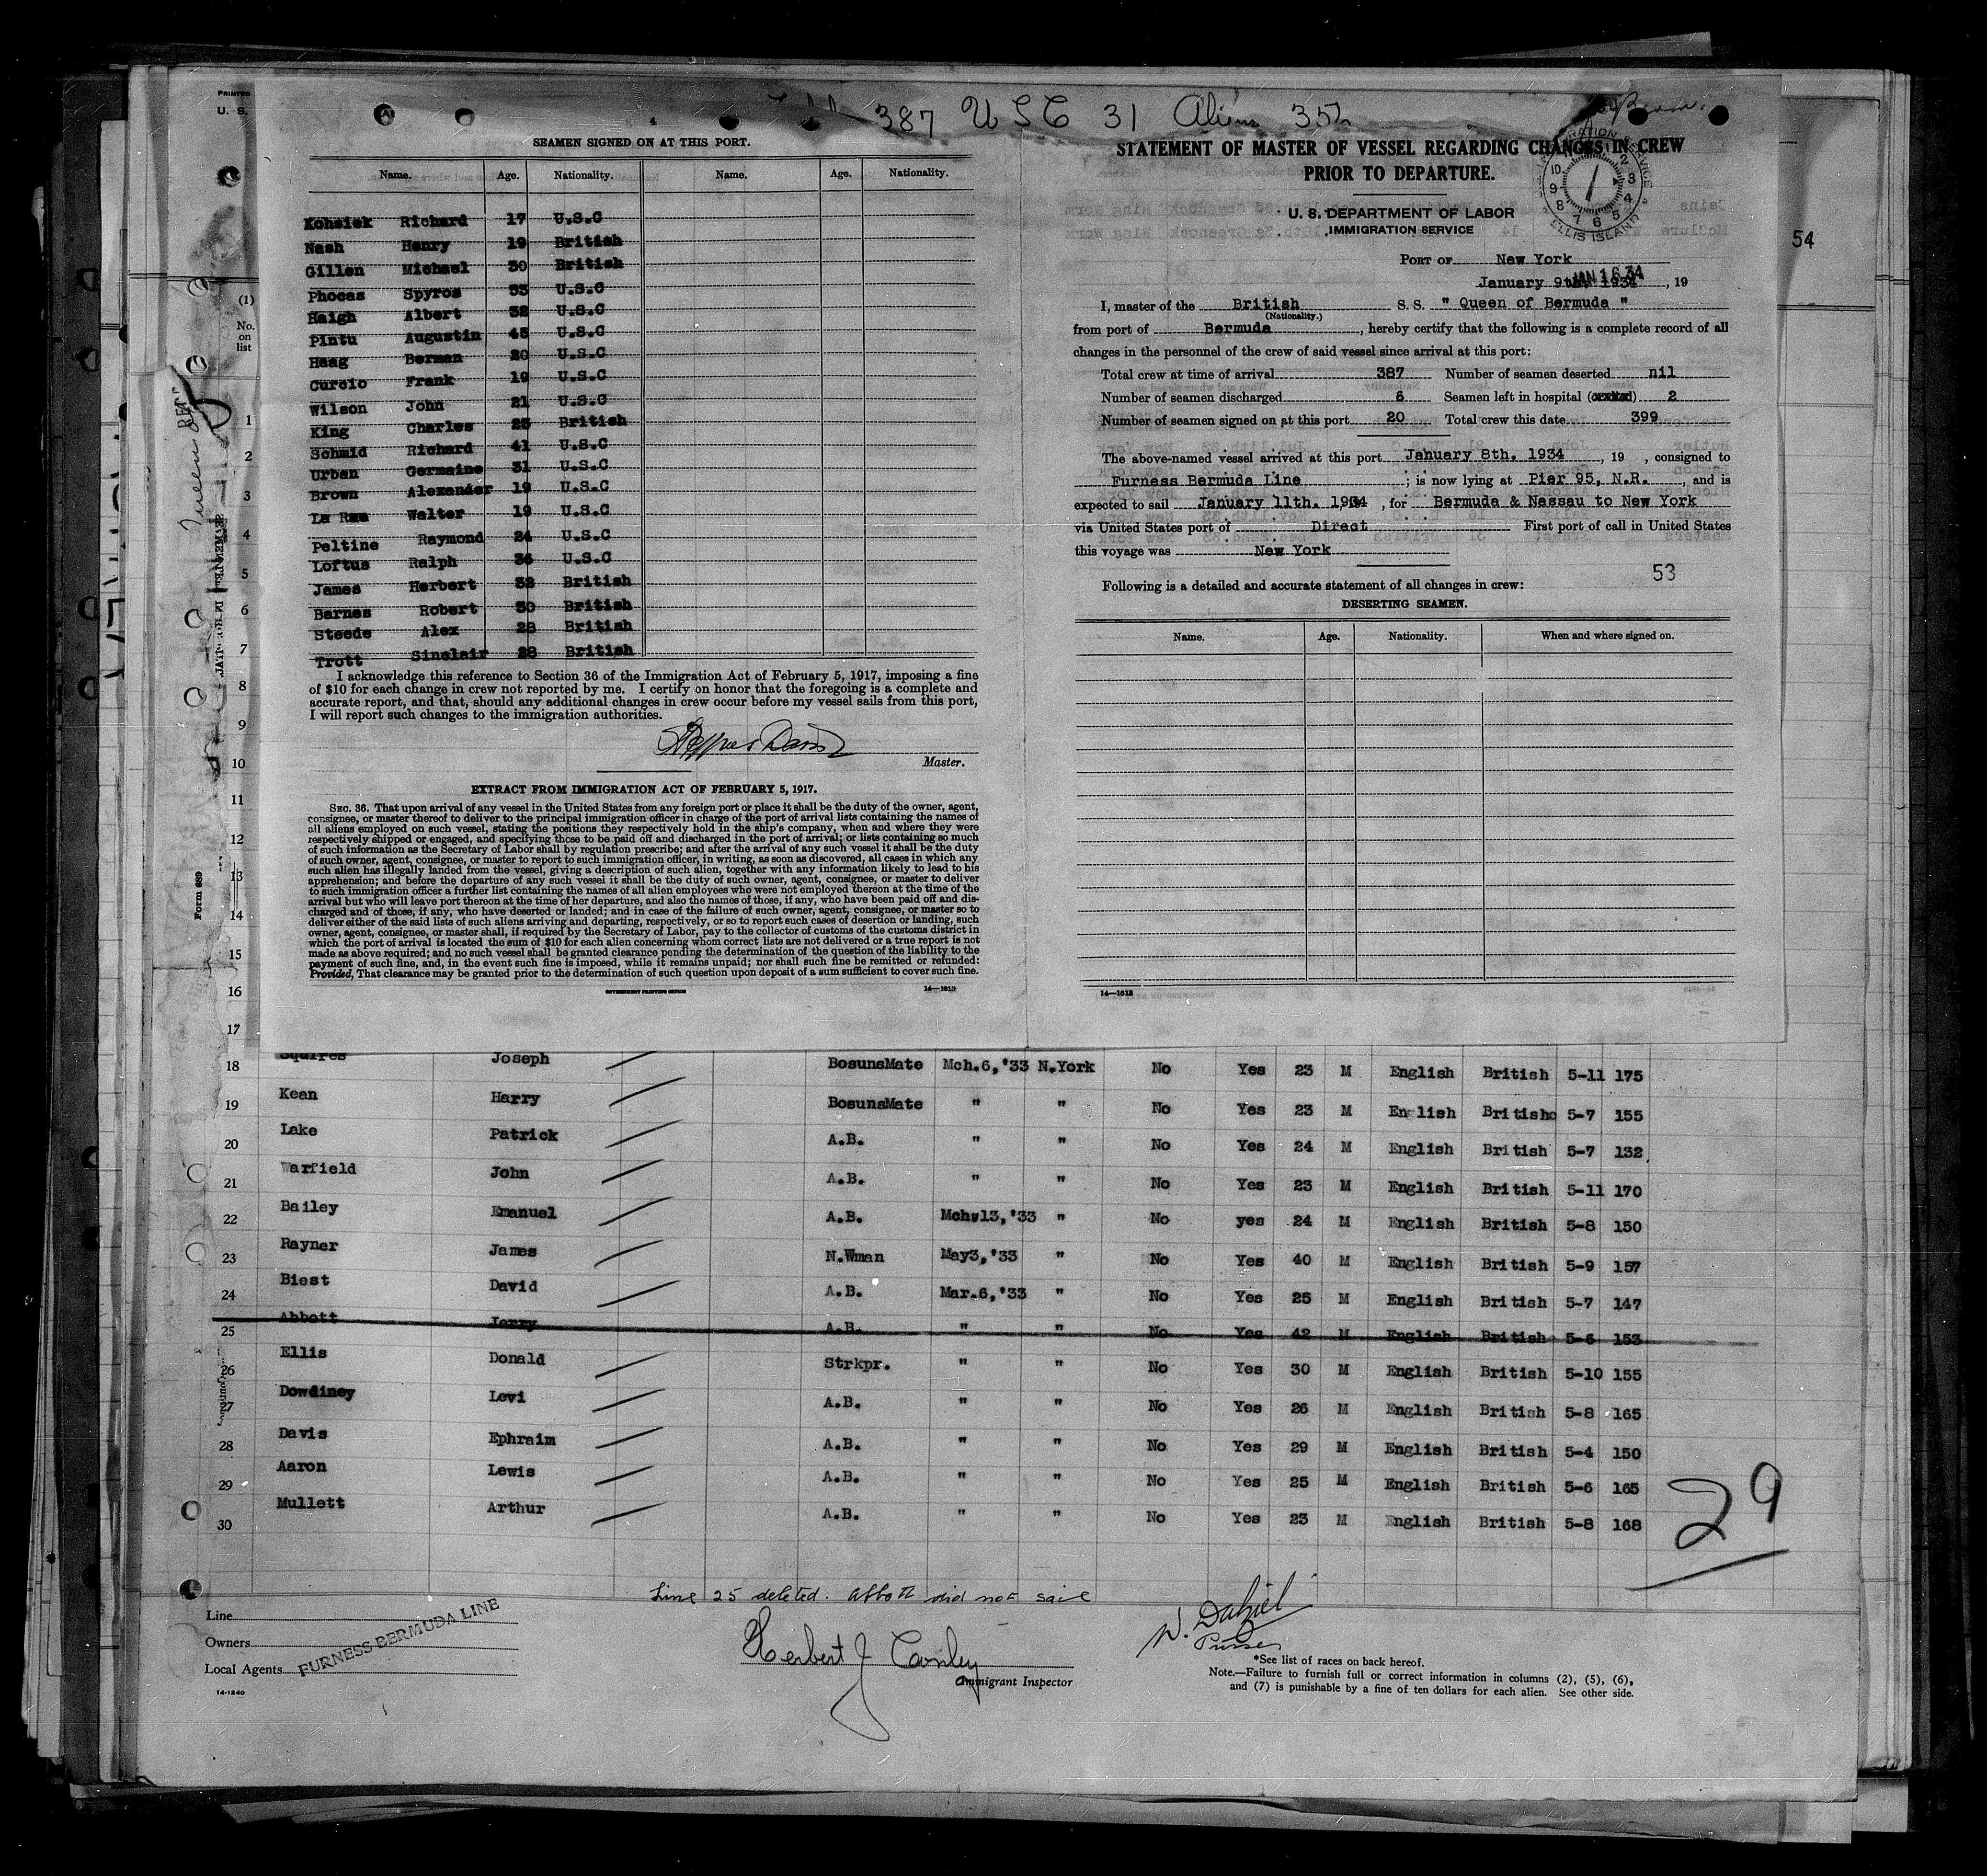 PRINTED
U. S.
387 U S C 31 Aliens 352
SEAMEN SIGNED ON AT THIS PORT.
Name. Age. Nationality. Name. Age. Nationality.
Kohsiek Richard 17 U.S.C
Nash Henry 19 British
Gillen Michael 30 British
Phocas Spyros 33 U.S.C
Haigh Albert 32 U.S.C
Pintu Augustin 45 U.S.C
Haag Berman 20 U.S.C
Curcio Frank 19 U.S.C
Wilson John 21 U.S.C
King Charles 23 British
Schmid Richard 41 U.S.C
Urban Germaine 31 U.S.C
Brown Alexander 19 U.S.C
La Rue Walter 19 U.S.C
Peltine Raymond 24 U.S.C
Loftus Ralph 36 U.S.C
James Herbert 32 British
Barnes Robert 30 British
Steede Alex 28 British
Trott Sinclair 28 British
I acknowledge this reference to Section 36 of the Immigration Act of February 5, 1917, imposing a fine
of $10 for each change in crew not reported by me. I certify on honor that the foregoing is a complete and
accurate report, and that, should any additional changes in crew occur before my vessel sails from this port,
I will report such changes to the immigration authorities.
Master.
EXTRACT FROM IMMIGRATION ACT OF FEBRUARY 5, 1917.
SEC. 36. That upon arrival of any vessel in the United States from any foreign port or place it shall be the duty of the owner, agent,
consignee, or master thereof to deliver to the principal immigration officer in charge of the port of arrival lists containing the names of
all aliens employed on such vessel, stating the positions they respectively hold in the ship's company, when and where they were
respectively shipped or engaged, and specifying those to be paid off and discharged in the port of arrival; or lists containing so much
of such information as the Secretary of Labor shall by regulation prescribe; and after the arrival of any such vessel it shall be the duty
of such owner, agent, consignee, or master to report to such immigration officer, in writing, as soon as discovered, all cases in which any
such alien has illegally landed from the vessel, giving a description of such alien, together with any information likely to lead to his
apprehension; and before the departure of any such vessel it shall be the duty of such owner, agent, consignee, or master to deliver
to such immigration officer a further list containing the names of all alien employees who were not employed thereon at the time of the
arrival but who will leave port thereon at the time of her departure, and also the names of those, if any, who have been paid off and dis-
charged and of those, if any, who have deserted or landed; and in case of the failure of such owner, agent, consignee, or master so to
deliver either of the said lists of such aliens arriving and departing, respectively, or so to report such cases of desertion or landing, such
owner, agent, consignee, or master shall, if required by the Secretary of Labor, pay to the collector of customs of the customs district in
which the port of arrival is located the sum of $10 for each alien concerning whom correct lists are not delivered or a true report is not
made as above required; and no such vessel shall be granted clearance pending the determination of the question of the liability to the
payment of such fine, and, in the event such fine is imposed, while it remains unpaid; nor shall such fine be remitted or refunded:
Provided, That clearance may be granted prior to the determination of such question upon deposit of a sum sufficient to cover such fine.
GOVERNMENT PRINTING OFFICE 14—1613
STATEMENT OF MASTER OF VESSEL REGARDING CHANGES IN CREW
PRIOR TO DEPARTURE.
U. S. DEPARTMENT OF LABOR
IMMIGRATION SERVICE
ELLIS ISLAND
54
PORT OF New York
January 9th. 1934, 19
JAN 16 34
I, master of the British S. S. " Queen of Bermuda "
(Nationality.)
from port of Bermuda, hereby certify that the following is a complete record of all
changes in the personnel of the crew of said vessel since arrival at this port:
Total crew at time of arrival 387 Number of seamen deserted nil
Number of seamen discharged 6 Seamen left in hospital 2
Number of seamen signed on at this port 20 Total crew this date 399
The above-named vessel arrived at this port January 8th. 1934, 19 , consigned to
Furness Bermuda Line; is now lying at Pier 95, N.R., and is
expected to sail January 11th. 1934, for Bermuda & Nassau to New York
via United States port of Direct First port of call in United States
this voyage was New York
53
Following is a detailed and accurate statement of all changes in crew:
DESERTING SEAMEN.
Name. Age. Nationality. When and where signed on.
14—1613
(1)
No.
on
list
1
2
3
4
5
6
7
8
9
10
11
12
13
14
15
16
17
Form 689
18 Squires Joseph BosunsMate Mch.6,'33 N.York No Yes 23 M English British 5-11 175
19 Kean Harry BosunsMate " " No Yes 23 M English Britishc 5-7 155
20 Lake Patrick A.B. " " No Yes 24 M English British 5-7 132
21 Warfield John A.B. " " No Yes 23 M English British 5-11 170
22 Bailey Emanuel A.B. Mchs13,'33 " No yes 24 M English British 5-8 150
23 Rayner James N.Wman May3,'33 " No Yes 40 M English British 5-9 157
24 Biest David A.B. Mar.6,'33 " No Yes 25 M English British 5-7 147
25 Abbott Jerry A.B. " " No Yes 42 M English British 5-6 153
26 Ellis Donald Strkpr. " " No Yes 30 M English British 5-10 155
27 Dowdiney Levi A.B. " " No Yes 26 M English British 5-8 165
28 Davis Ephraim A.B. " " No Yes 29 M English British 5-4 150
29 Aaron Lewis A.B. " " No Yes 25 M English British 5-6 165
30 Mullett Arthur A.B. " " No Yes 23 M English British 5-8 168
29
Line 25 deleted. Abbott did not sail
Line
Owners
Local Agents
FURNESS BERMUDA LINE
14-1240
Herbert J Conley
Immigrant Inspector
Purser
*See list of races on back hereof.
Note.—Failure to furnish full or correct information in columns (2), (5), (6),
and (7) is punishable by a fine of ten dollars for each alien. See other side.